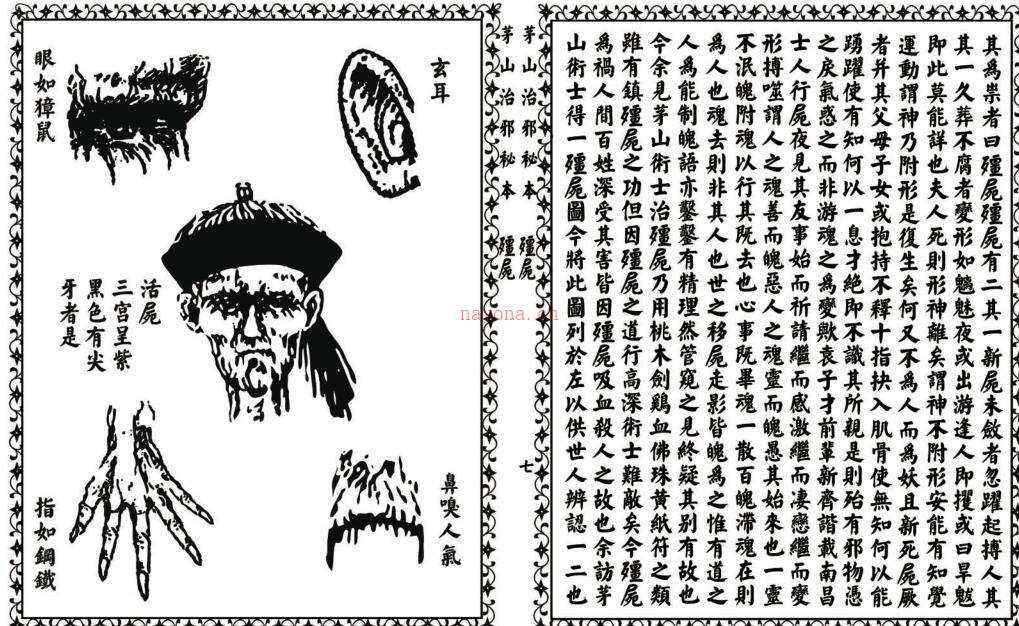 其爲祟者曰殭屍殭屍有二其一新屍未斂者忽躍起搏人其
其一久葬不腐者變形如魑魅夜或出游逢人即攫或曰旱魃
即此莫能詳也夫人死則形神離矣謂神不附形安能有知覺
運動謂神乃附形是復生矣何又不爲人而爲妖且新死屍厥
者并其父母子女或抱持不釋十指抉入肌骨使無知何以能
踴躍使有知何以一息才絕即不識其所親是則殆有邪物憑
之戾氣惑之而非游魂之爲變歟袁子才前輩新齊諧載南昌
士人行屍夜見其友事始而祈請繼而感激繼而凄戀繼而變
形搏噬謂人之魂善而魄惡人之魂靈而魄愚其始來也一靈
不泯魄附魂以行其既去也心事既畢魂一散百魄滯魂在則
爲人也魂去則非其人也世之移屍走影皆魄爲之惟有道之
人爲能制魄語亦鑿鑿有精理然管窺之見終疑其別有故也
今余見茅山術士治殭屍乃用桃木劍鷄血佛珠黃紙符之類
雖有鎮殭屍之功但因殭屍之道行高深術士難敵矣今殭屍
爲禍人間百姓深受其害皆因殭屍吸血殺人之故也余訪茅
山術士得一殭屍圖今將此圖列於左以供世人辨認一二也
茅山治邪秘本 殭屍
茅山治邪秘本 殭屍
七
玄耳
眼如獐鼠
活屍
三宫呈紫
黑色有尖
牙者是
鼻嗅人氣
指如鋼鐵
nayona.cn